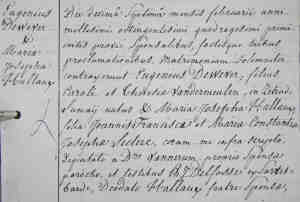 Eugenius
De Wever
&
Maria
Josepha
Hallaux
Die decimâ septimâ mensis februarii anni
millesimi octingentesimi quadragesimi primi
initis proxis Sponsalibus, factisque tribus
proclamationibus, Matrimonium Solemniter
contraxerunt Eugenius De Wever, filius
Caroli et Theresia Vandermeulen, in
natus & Maria Josepha Hallaux
filia Joannis Francisci et Maria Constantia
Josepha Leclere, coram me infra scripto
deputato a Dno Vannerum, proprio Sponsa
parocho, et testibus Delfosse ex
Deodato Hallaux fratre Sponsa,